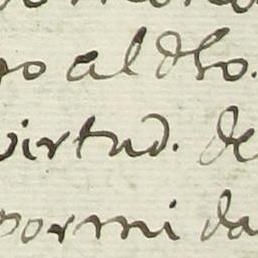 go al dho.
virtud. de
por mi da